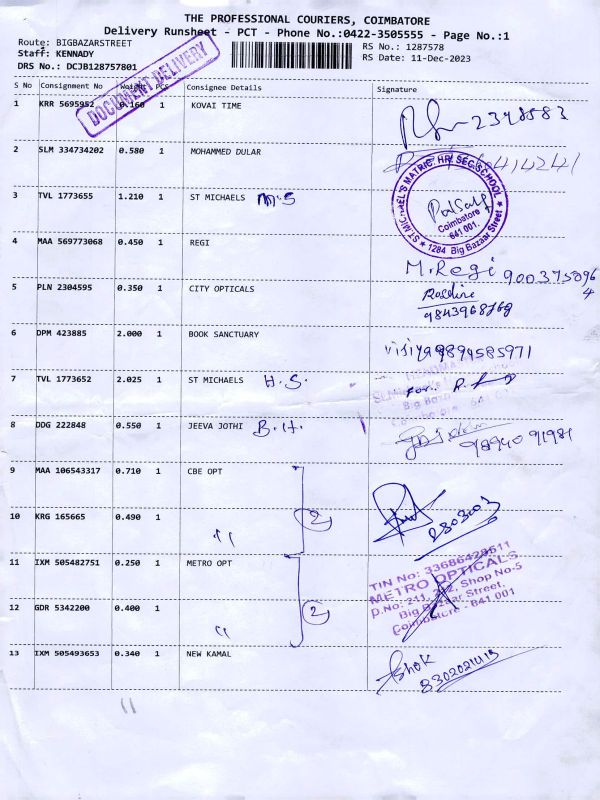 THE PROFESSIONAL COURIERS, COIMBATORE
Delivery Runsheet - PCT - Phone No.:0422-3505555 - Page No.:1
Route: BIGBAZARSTREET
Staff: KENNADY
DRS No.: DCJB128757801
RS No.: 1287578
RS Date: 11-Dec-2023
DOCUMENT DELIVERY
S No Consignment No Weight PCS Consignee Details Signature
1 KRR 5695952 0.160 1 KOVAI TIME 2348583
2 SLM 334734202 0.580 1 MOHAMMED DULAR
ST MICHAEL'S MATRIC. HR. SEC. SCHOOL
Coimbatore
641 001.
* 1284 Big Bazaar Street *
3 TVL 1773655 1.210 1 ST MICHAELS M.S
4 MAA 569773068 0.450 1 REGI M.Regi 9003758964
5 PLN 2304595 0.350 1 CITY OPTICALS
6 DPM 423885 2.000 1 BOOK SANCTUARY 9894585971
7 TVL 1773652 2.025 1 ST MICHAELS H.S. For.
8 DDG 222848 0.550 1 JEEVA JOTHI B.H. 9894091981
9 MAA 106543317 0.710 1 CBE OPT
10 KRG 165665 0.490 1 " 2 2303003
11 IXM 505482751 0.250 1 METRO OPT
TIN No: 33686428611
METRO OPTICALS
D.No: 211, 212, Shop No-5
Big Bazaar Street,
Coimbatore - 641 001
12 GDR 5342200 0.400 1 " 2
13 IXM 505493653 0.340 1 NEW KAMAL Ashok
"